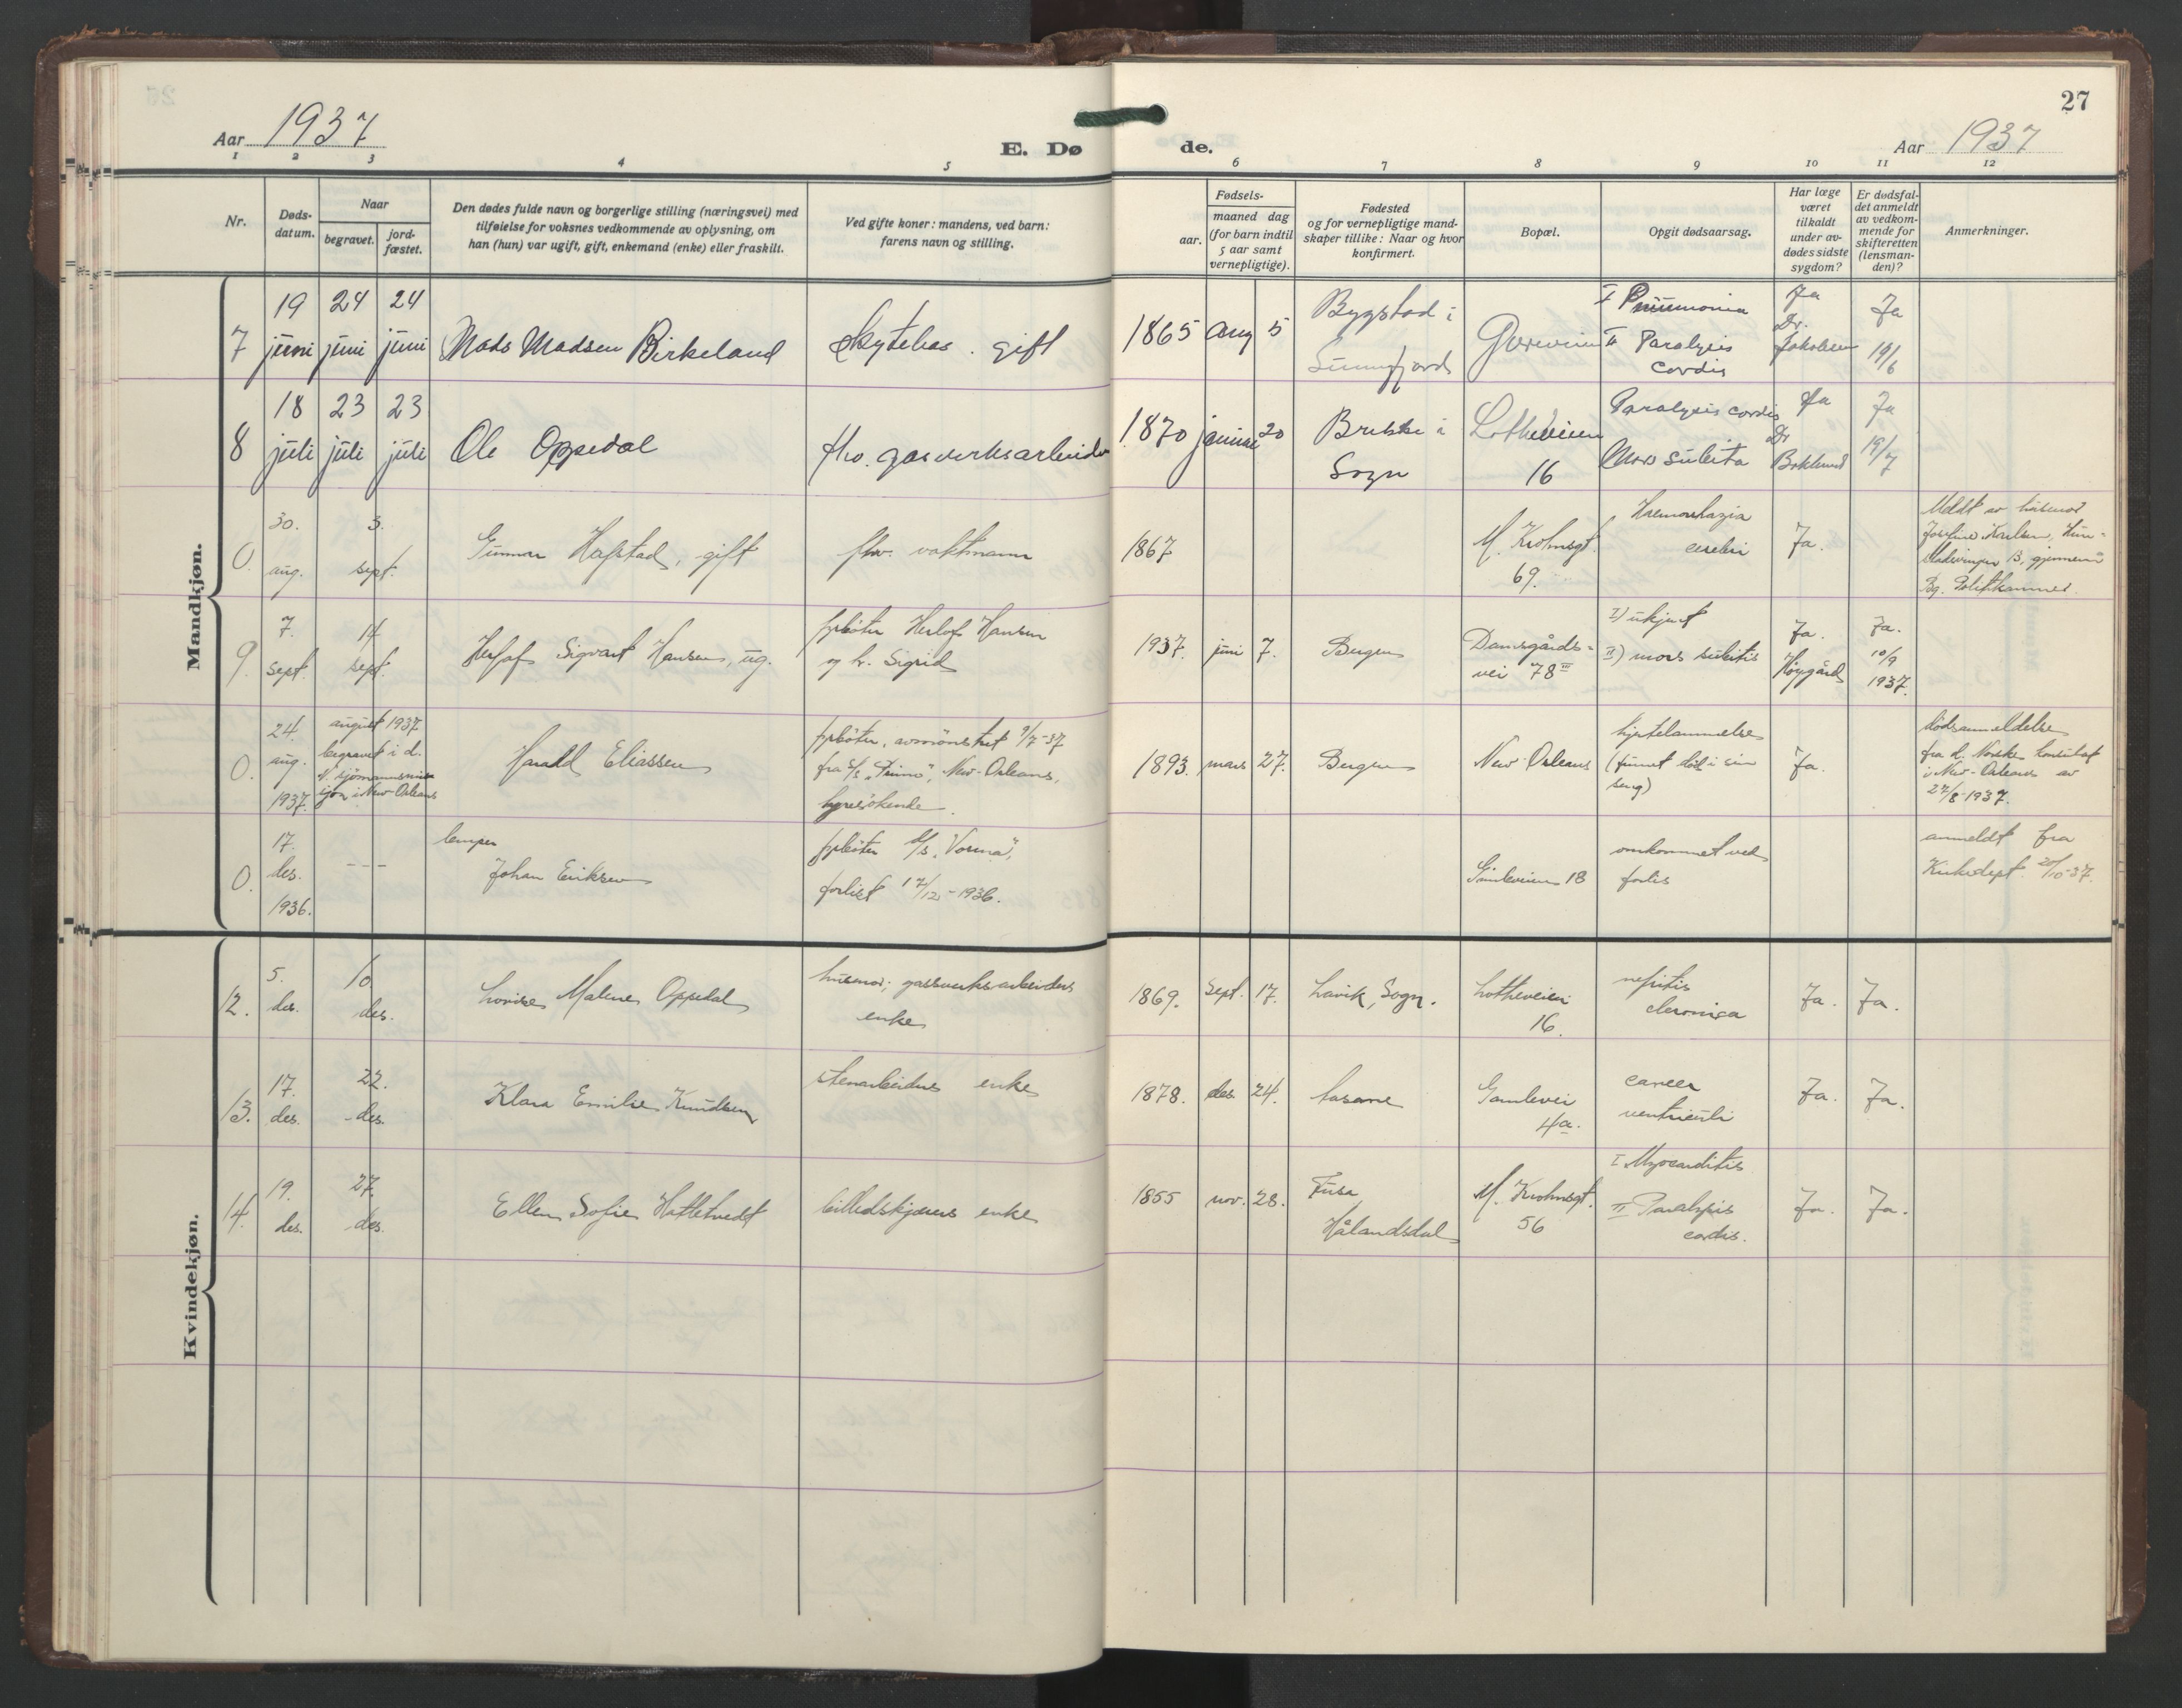 27
Aar 1937
E. Døde.
Aar 1937
1 2 3 4 5 6 7 8 9 10 11 12
Nr.
Døds-
datum.
Naar
begravet.
jord-
fæstet.
Den dødes fulde navn og borgerlige stilling (næringsvei) med
tilføielse for voksnes vedkommende av oplysning, om
han (hun) var ugift, gift, enkemand (enke) eller fraskilt.
Ved gifte koner: mandens, ved barn:
farens navn og stilling.
Fødsels-
aar.
maaned dag
(for barn indtil
5 aar samt
vernepligtige).
Fødested
og for vernepligtige mand-
skaper tillike: Naar og hvor
konfirmert.
Bopæl.
Opgit dødsaarsag.
Har læge
været
tilkaldt
under av-
dødes sidste
sygdom?
Er dødsfal-
det anmeldt
av vedkom-
mende for
skifteretten
(lensman-
den)?
Anmerkninger.
Mandkjøn.
7
19 juni
24 juni
24 juni
Mads Madsen Birkeland
gift
1865 aug 5
Bygstad i
Sunnfjord
I Pneumonia
II Paralysis
cordis
Ja
Dr.
Jakobsen
Ja
19/6
8
18 juli
23 juli
23 juli
Ole Oppedal
fhv. gasverksarbeider
1870 januar 20
Brekke i
Sogn
Lotheveien
16
Paralysis cordis
Mors subita
Ja
Dr
Ja
19/7
0.
30. aug.
3. sept.
Gunnar Hafstad, gift
fhv. vaktmann
1867
M. Krohnsgt.
69.
Hæmorrhagia
cerebri
Ja.
Meldt av husmor
gjennem
Bg. Politikammer.
9.
7. sept.
14 sept.
Herlof Sigvart Hansen, ug.
fyrbøter Herlof Hansen
og h. Sigrid
1937. juni 7.
Bergen
Damsgårds-
vei 78 III
I) ukjent
II) mors subita
Ja.
Høygård
Ja.
10/9
1937.
0.
24. aug. 1937.
august 1937
begravet i d.
N. sjømannsmis-
sjon i New-Orleans
Harald Eliassen
fyrbøter, avmønstret 9/7-37
fra s/s "Primo", New-Orleans,
hyresøkende.
1893. mars 27.
Bergen
New-Orleans
hjertelammelse
(funnet død i sin
seng)
Ja.
dødsanmeldelse
fra d. Norske konsulat
i New-Orleans av
27/8-1937.
0.
17. des. 1936.
---
lemper
Johan Eriksen
fyrbøter s/s "Vorma",
forlist 17/12-1936.
18
omkommet ved
forlis
anmeldt fra
Kirkedept. 20/10-37.
Kvindekjøn.
12.
5. des.
10. des.
Lovise Maline Oppedal
husmor; gassverksarbeiders
enke
1869. sept. 17.
Lavik, Sogn.
Lotheveien
16.
nefritis
chronica
Ja.
Ja.
13.
17. des.
22. des.
Klara Emilie Knudsen
stenarbeiders enke
1878. des. 24.
Aasane
Gamlevei
4a.
cancer
ventriculi
Ja.
Ja.
14.
19. des.
27. des.
Ellen Sofie Hatletvedt
billedskjærers enke
1855 nov. 28.
Fusa
Hålandsdal
M. Krohnsgt.
56
I Myocarditis
II Paralysis
cordis.
Ja.
Ja.